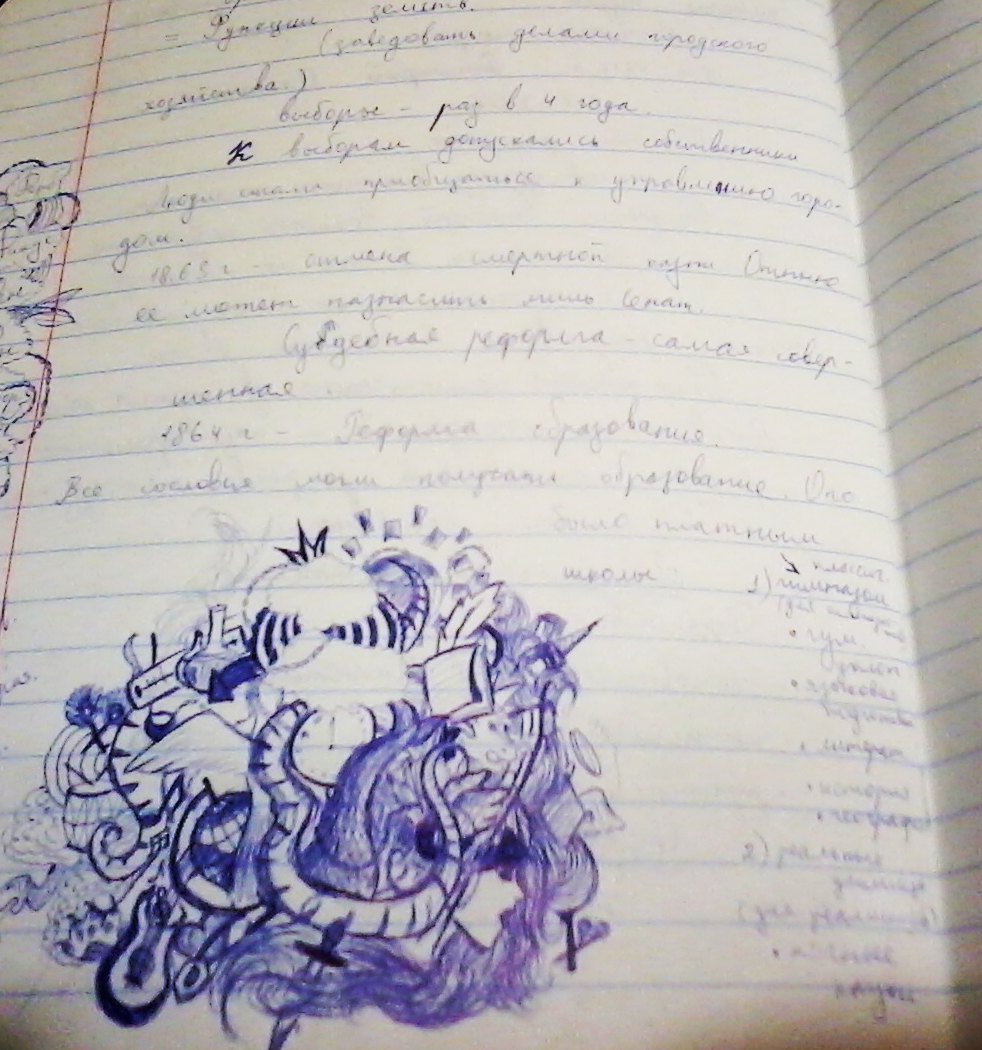 = Функции земств.
(заведовать делами городского
хозяйства.)
выборы - раз в 4 года.
К выборам допускались собственники
Люди стали приобщаться к управлению горо-
дом.
1863 г - отмена смертной казни
ее может назначить лишь Сенат.
Судебная реформа - самая совер-
шенная.
1864 г - Реформа образования.
Все сословия могли получать образование. Оно
было платным
школы
класич.
1) гимназии
(для
• гум.
уклон
• языковая
• литерат
• история
• географ
2) реальные
училища
(для
•
науки